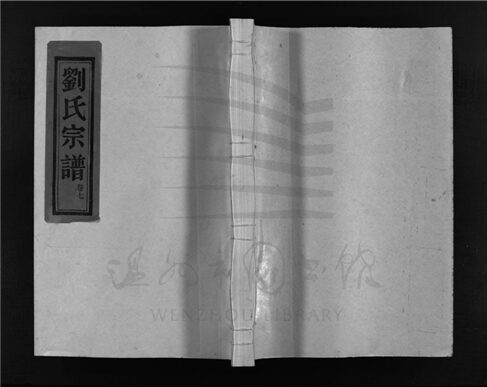 劉氏宗譜
卷七
温州市图书馆
WENZHOU LIBRARY